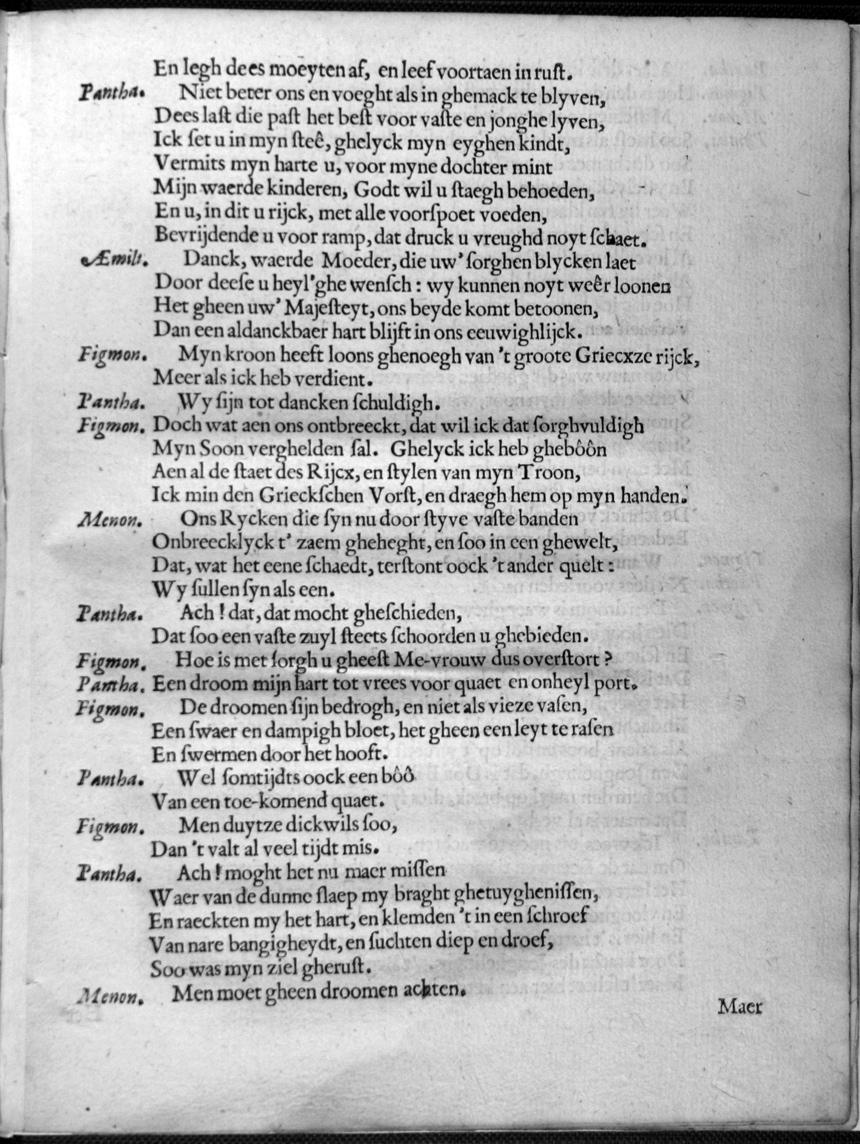 En legh dees moeyten af, en leef voortaen in ruſt.
Pantha. Niet beter ons en voeght als in ghemack te blyven,
Dees laſt die paſt het beſt voor vaſte en jonghe lyven,
Ick ſet u in myn ſteê, ghelyck myn eyghen kindt,
Vermits myn harte u, voor myne dochter mint
Mijn waerde kinderen, Godt wil u ſtaegh behoeden,
En u, in dit u rijck, met alle voorſpoet voeden,
Bevrijdende u voor ramp, dat druck u vreughd noyt ſchaet.
Æmilt. Danck, waerde Moeder, die uw' ſorghen blycken laet
Door deeſe u heyl'ghe wenſch: wy kunnen noyt weêr loonen
Het gheen uw' Majeſteyt, ons beyde komt betoonen,
Dan een aldanckbaer hart blijft in ons eeuwighlijck.
Figmon. Myn kroon heeft loons ghenoegh van 't groote Griecxze rijck,
Meer als ick heb verdient.
Pantha. Wy ſijn tot dancken ſchuldigh.
Figmon. Doch wat aen ons ontbreeckt, dat wil ick dat ſorghvuldigh
Myn Soon verghelden ſal. Ghelyck ick heb ghebôôn
Aen al de ſtaet des Rijcx, en ſtylen van myn Troon,
Ick min den Grieckſchen Vorſt, en draegh hem op myn handen.
Menon. Ons Rycken die ſyn nu door ſtyve vaſte banden
Onbreecklyck t' zaem gheheght, en ſoo in een ghewelt,
Dat, wat het eene ſchaedt, terſtont oock 't ander quelt:
Wy ſullen ſyn als een.
Pantha. Ach! dat, dat mocht gheſchieden,
Dat ſoo een vaſte zuyl ſteets ſchoorden u ghebieden.
Figmon. Hoe is met ſorgh u gheeſt Me-vrouw dus overſtort?
Pantha. Een droom mijn hart tot vrees voor quaet en onheyl port.
Figmon. De droomen ſijn bedrogh, en niet als vieze vaſen,
Een ſwaer en dampigh bloet, het gheen een leyt te raſen
En ſwermen door het hooft.
Pantha. Wel ſomtijdts oock een bôô
Van een toe-komend quaet.
Figmon. Men duytze dickwils ſoo,
Dan 't valt al veel tijdt mis.
Pantha. Ach! moght het nu maer miſſen
Waer van de dunne ſlaep my braght ghetuygheniſſen,
En raeckten my het hart, en klemden 't in een ſchroef
Van nare bangigheydt, en ſuchten diep en droef,
Soo was myn ziel gheruſt.
Menon. Men moet gheen droomen achten.
Maer